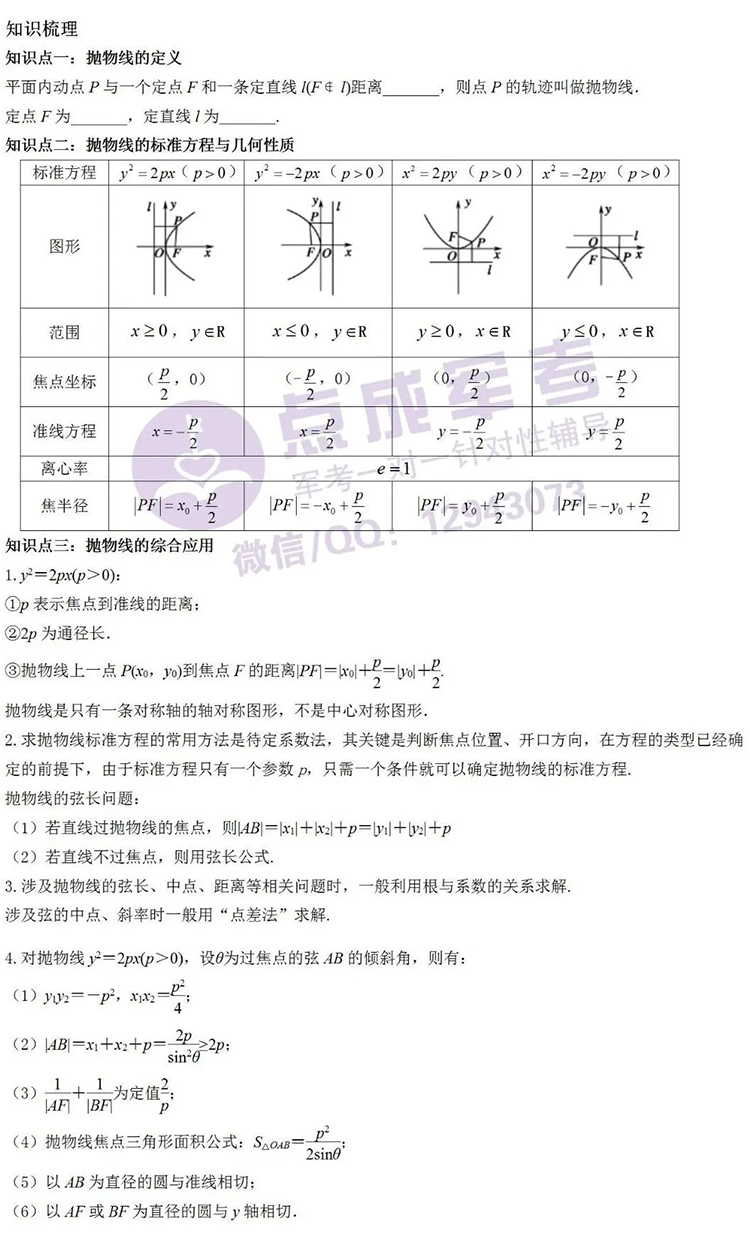 知识梳理
知识点一：抛物线的定义
平面内动点 P 与一个定点 F 和一条定直线 l(F∉l)距离_______，则点 P 的轨迹叫做抛物线．
定点 F 为_______，定直线 l 为_______.
知识点二：抛物线的标准方程与几何性质
标准方程 y²=2px（p>0） y²=−2px（p>0） x²=2py（p>0） x²=−2py（p>0）
图形
l y P O F x
y l P F O x
y F P O x l
y l O F P x
范围 x≥0，y∈R x≤0，y∈R y≥0，x∈R y≤0，x∈R
焦点坐标 （p/2，0） （−p/2，0） （0，p/2） （0，−p/2）
准线方程 x=−p/2 x=p/2 y=−p/2 y=p/2
离心率 e=1
焦半径 |PF|=x₀+p/2 |PF|=−x₀+p/2 |PF|=y₀+p/2 |PF|=−y₀+p/2
点成军考
军考一对一针对性辅导
微信/QQ：12343073
知识点三：抛物线的综合应用
1. y²＝2px(p＞0)：
①p 表示焦点到准线的距离；
②2p 为通径长．
③抛物线上一点 P(x₀，y₀)到焦点 F 的距离|PF|＝|x₀|＋p/2＝|y₀|＋p/2.
抛物线是只有一条对称轴的轴对称图形，不是中心对称图形．
2. 求抛物线标准方程的常用方法是待定系数法，其关键是判断焦点位置、开口方向，在方程的类型已经确
定的前提下，由于标准方程只有一个参数 p，只需一个条件就可以确定抛物线的标准方程.
抛物线的弦长问题：
（1）若直线过抛物线的焦点，则|AB|＝|x₁|＋|x₂|＋p＝|y₁|＋|y₂|＋p
（2）若直线不过焦点，则用弦长公式.
3. 涉及抛物线的弦长、中点、距离等相关问题时，一般利用根与系数的关系求解.
涉及弦的中点、斜率时一般用“点差法”求解.
4. 对抛物线 y²＝2px(p＞0)，设θ为过焦点的弦 AB 的倾斜角，则有：
（1）y₁y₂＝－p²，x₁x₂＝p²/4；
（2）|AB|＝x₁＋x₂＋p＝2p/sin²θ≥2p；
（3）1/|AF|＋1/|BF|为定值2/p；
（4）抛物线焦点三角形面积公式：S△OAB＝p²/2sinθ；
（5）以 AB 为直径的圆与准线相切；
（6）以 AF 或 BF 为直径的圆与 y 轴相切．